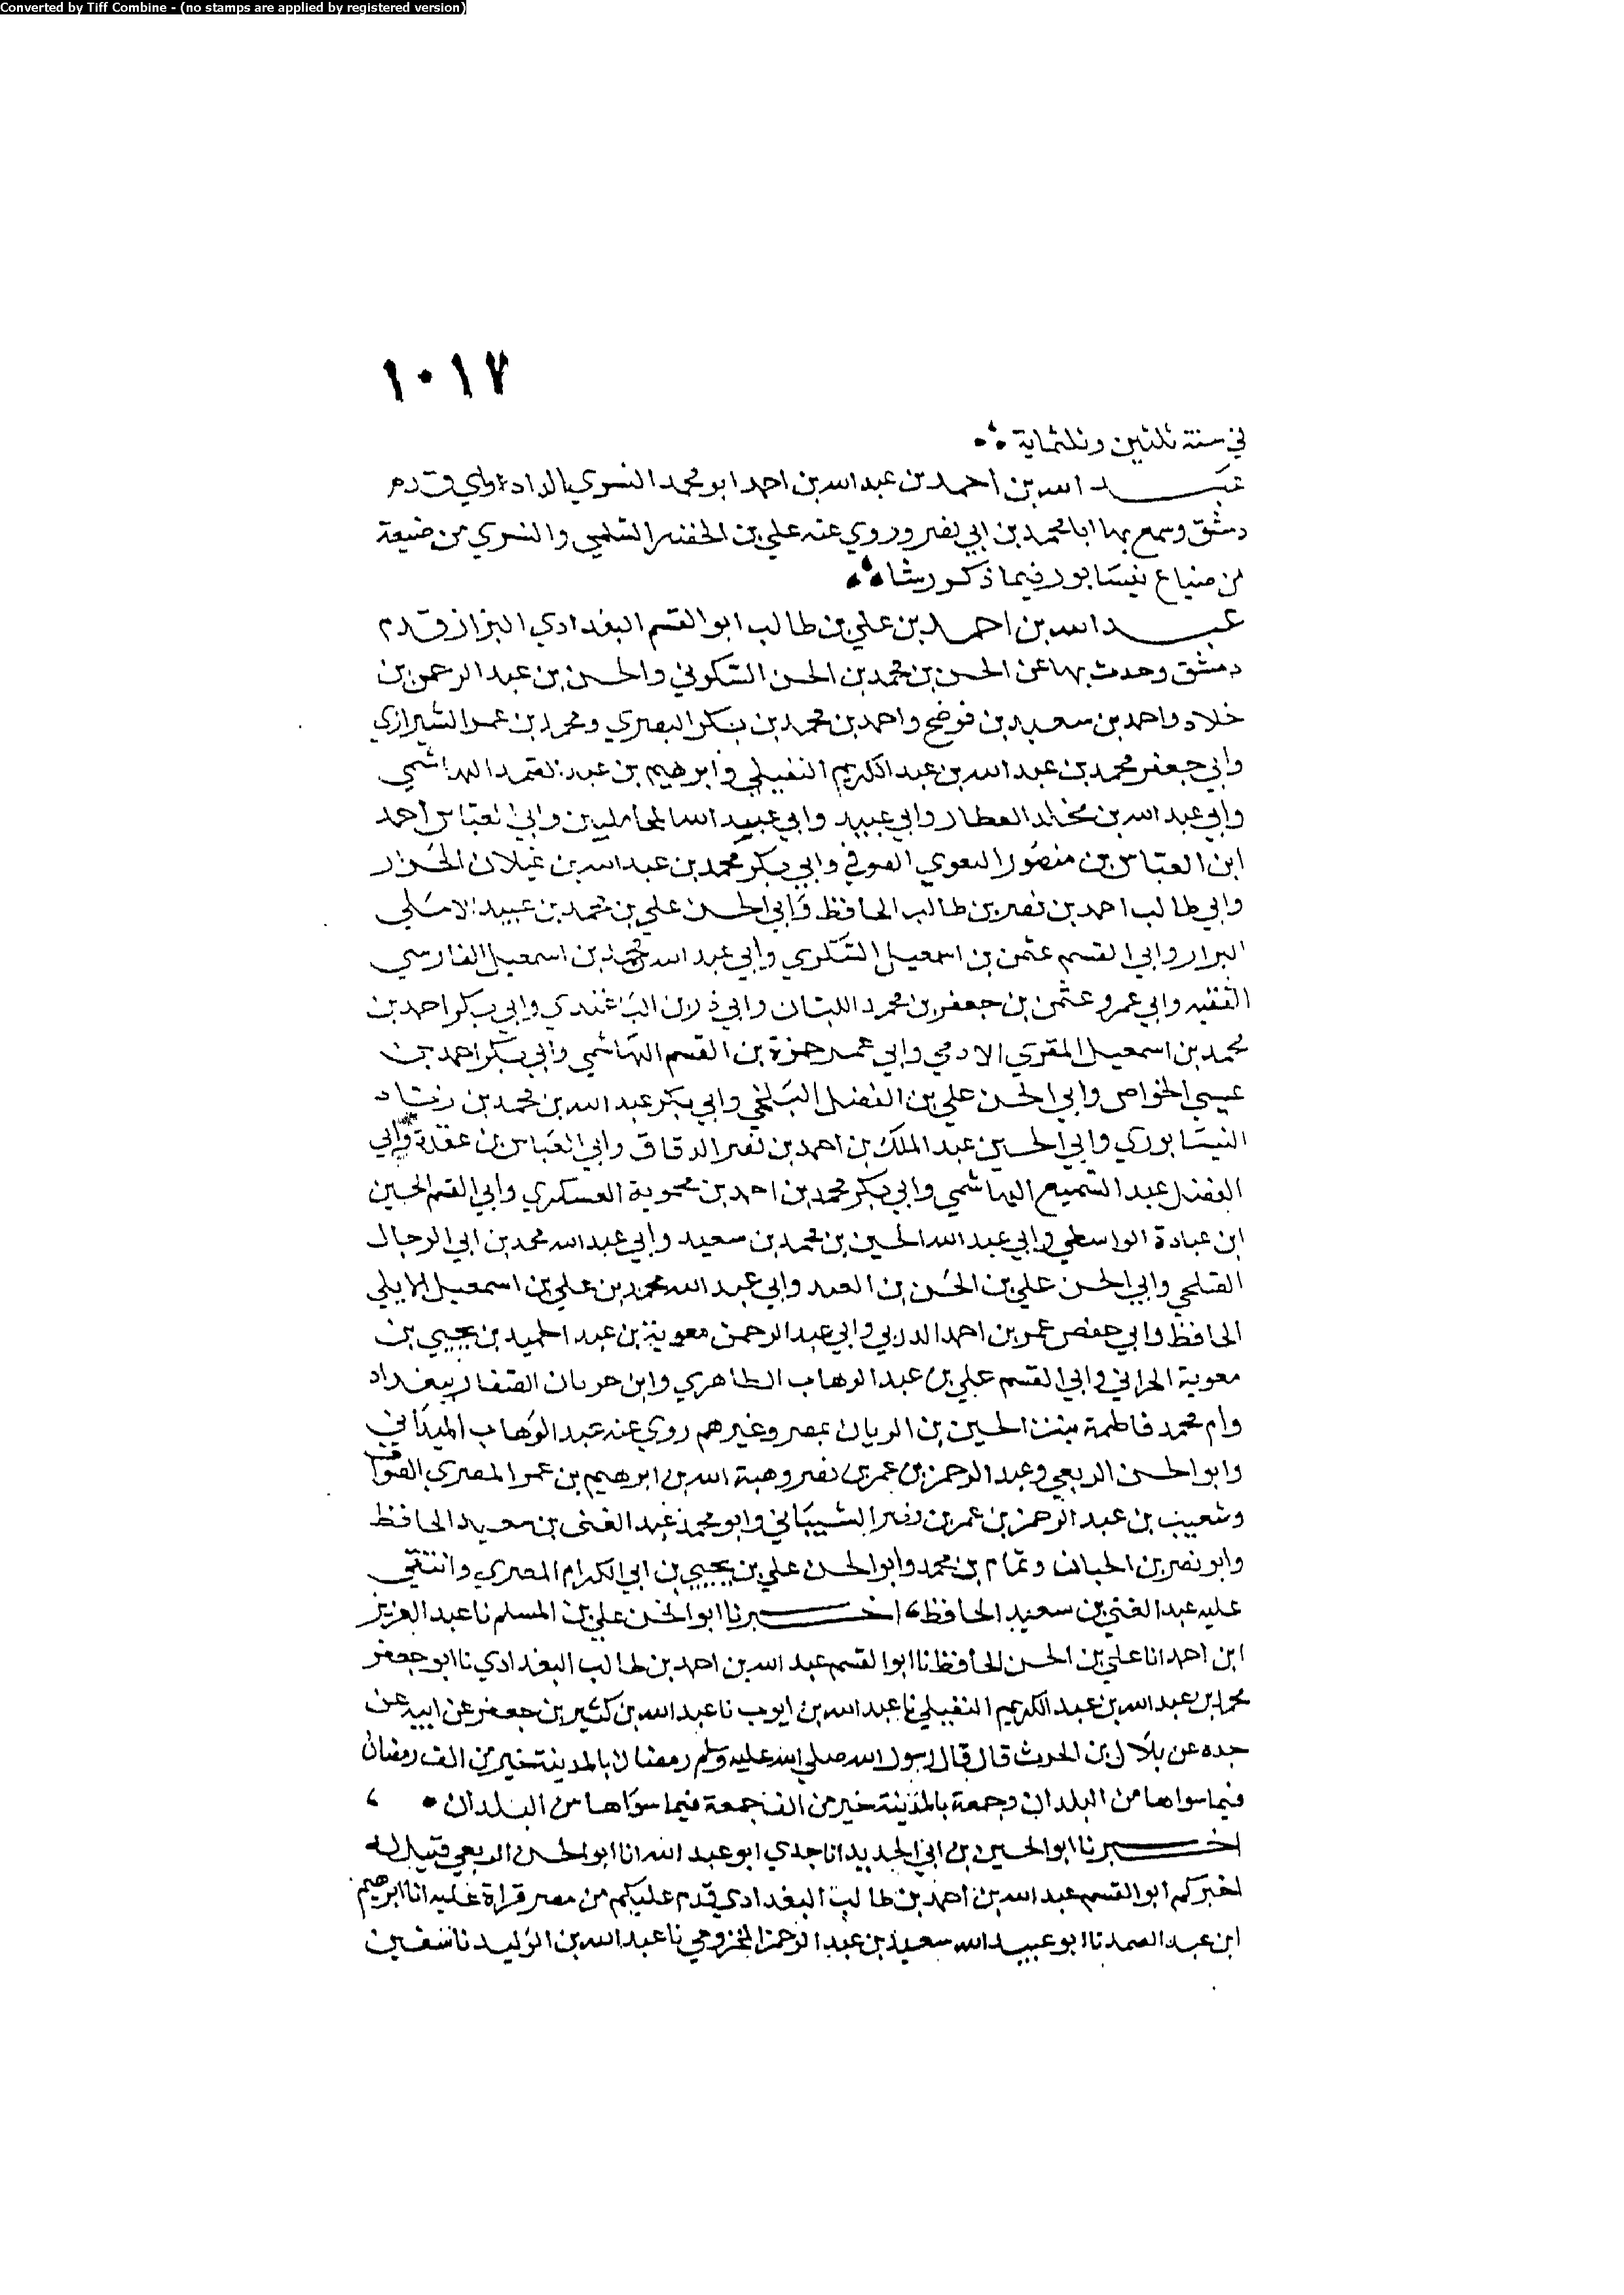 Converted by Tiff Combine - (no stamps are applied by registered version)
١٠١٧
في سنة ثلثين وثلثماية
عبد الله بن احمد بن عبد الله بن احمد ابو محمد النسوي قدم
دمشق وسمع بها ابا محمد بن ابي نصر وروي عنه علي بن الخضر السلمي والنسوي من ضيعة
من ضياع نيسابور فيما ذكر رشا
عبد الله بن احمد بن علي بن طالب ابو القسم البغدادي البزاز قدم
دمشق وحدث بها عن الحسن بن محمد بن الحسن السكوني والحسن بن عبد الرحمن بن
خلاد واحمد بن سعيد بن فرضخ واحمد بن محمد بن بكر البصري ومحمد بن عمر الشيرازي
وابي جعفر محمد بن عبد الله بن عبد الكريم النفيلي وابرهيم بن عبد الصمد الهاشمي
وابي عبد الله بن مخلد العطار وابي عبيد وابي عبيد الله المحامليين وابي العباس احمد
ابن العباس بن منصور البغوي الصوفي وابي بكر محمد بن عبد الله بن غيلان الخزاز
وابي طالب احمد بن نصر بن طالب الحافظ وابي الحسن علي بن محمد بن عبيد
البزاز وابي القسم عثمن بن اسمعيل السكري وابي عبد الله محمد بن اسمعيل الفارسي
الفقيه وابي عمرو عثمن بن جعفر بن محمد اللبان وابي ذر ابن الباغندي وابي بكر احمد بن
محمد بن اسمعيل المقري الادمي وابي عمر حمزة بن القسم الهاشمي وابي بكر احمد بن
عيسي الخواص وابي الحسن علي بن الفضل البلخي وابي بكر عبد الله بن محمد بن زياد
النيسابوري وابي الحسين عبد الملك بن احمد بن نصر الدقاق وابي العباس بن عقدة وابي
الفضل عبد السميع الهاشمي وابي بكر محمد بن احمد بن محموية العسكري وابي القسم الحسين
ابن عبادة الواسطي وابي عبد الله الحسين بن محمد بن سعيد وابي عبد الله محمد بن ابي الرجال
الصلحي وابي الحسن علي بن الحسن بن العبد وابي عبد الله محمد بن علي بن اسمعيل الايلي
الحافظ وابي حفص عمر بن احمد الدربي وابي عبد الرحمن معوية بن عبد الحميد بن يحيي بن
معوية الحراني وابي القسم علي بن عبد الوهاب الطاهري وابن حربان الصفار ببغداد
وام محمد فاطمة بنت الحسين بن الريان بمصر وغيرهم روي عنه عبد الوهاب الميداني
وابو الحسن الربعي وعبد الرحمن بن عمر بن نصر وهبة الله بن ابرهيم بن عمر المصري الصواف
وشعيب بن عبد الرحمن بن عمر بن نصر الشيباني وابو محمد عبد الغني بن سعيد الحافظ
وابو نصر بن الجبان وتمام بن محمد وابو الحسن علي بن يحيي بن ابي الكرام المصري وانتقي
عليه عبد الغني بن سعيد الحافظ، اخبرنا ابو الحسن علي بن المسلم نا عبد العزيز
ابن احمد انا علي بن الحسن الحافظ نا ابو القسم عبد الله بن احمد بن طالب البغدادي نا ابو جعفر
محمد بن عبد الله بن عبد الكريم النفيلي نا عبد الله بن ايوب نا عبد الله بن كثير بن جعفر عن ابيه عن
جده عن بلال بن الحرث قال قال رسول الله صلي الله عليه وسلم رمضان بالمدينة خير من الف رمضان
فيما سواها من البلدان وجمعة بالمدينة خير من الف جمعة فيما سواها من البلدان
اخبرنا ابو الحسين بن ابي الحديد انا جدي ابو عبد الله انا ابو الحسن الربعي قيل له
اخبركم ابو القسم عبد الله بن احمد بن طالب البغدادي قدم عليكم من مصر قراة عليه انا ابرهيم
ابن عبد الصمد نا ابو عبيد الله سعيد بن عبد الرحمن المخزومي نا عبد الله بن الوليد نا سفين